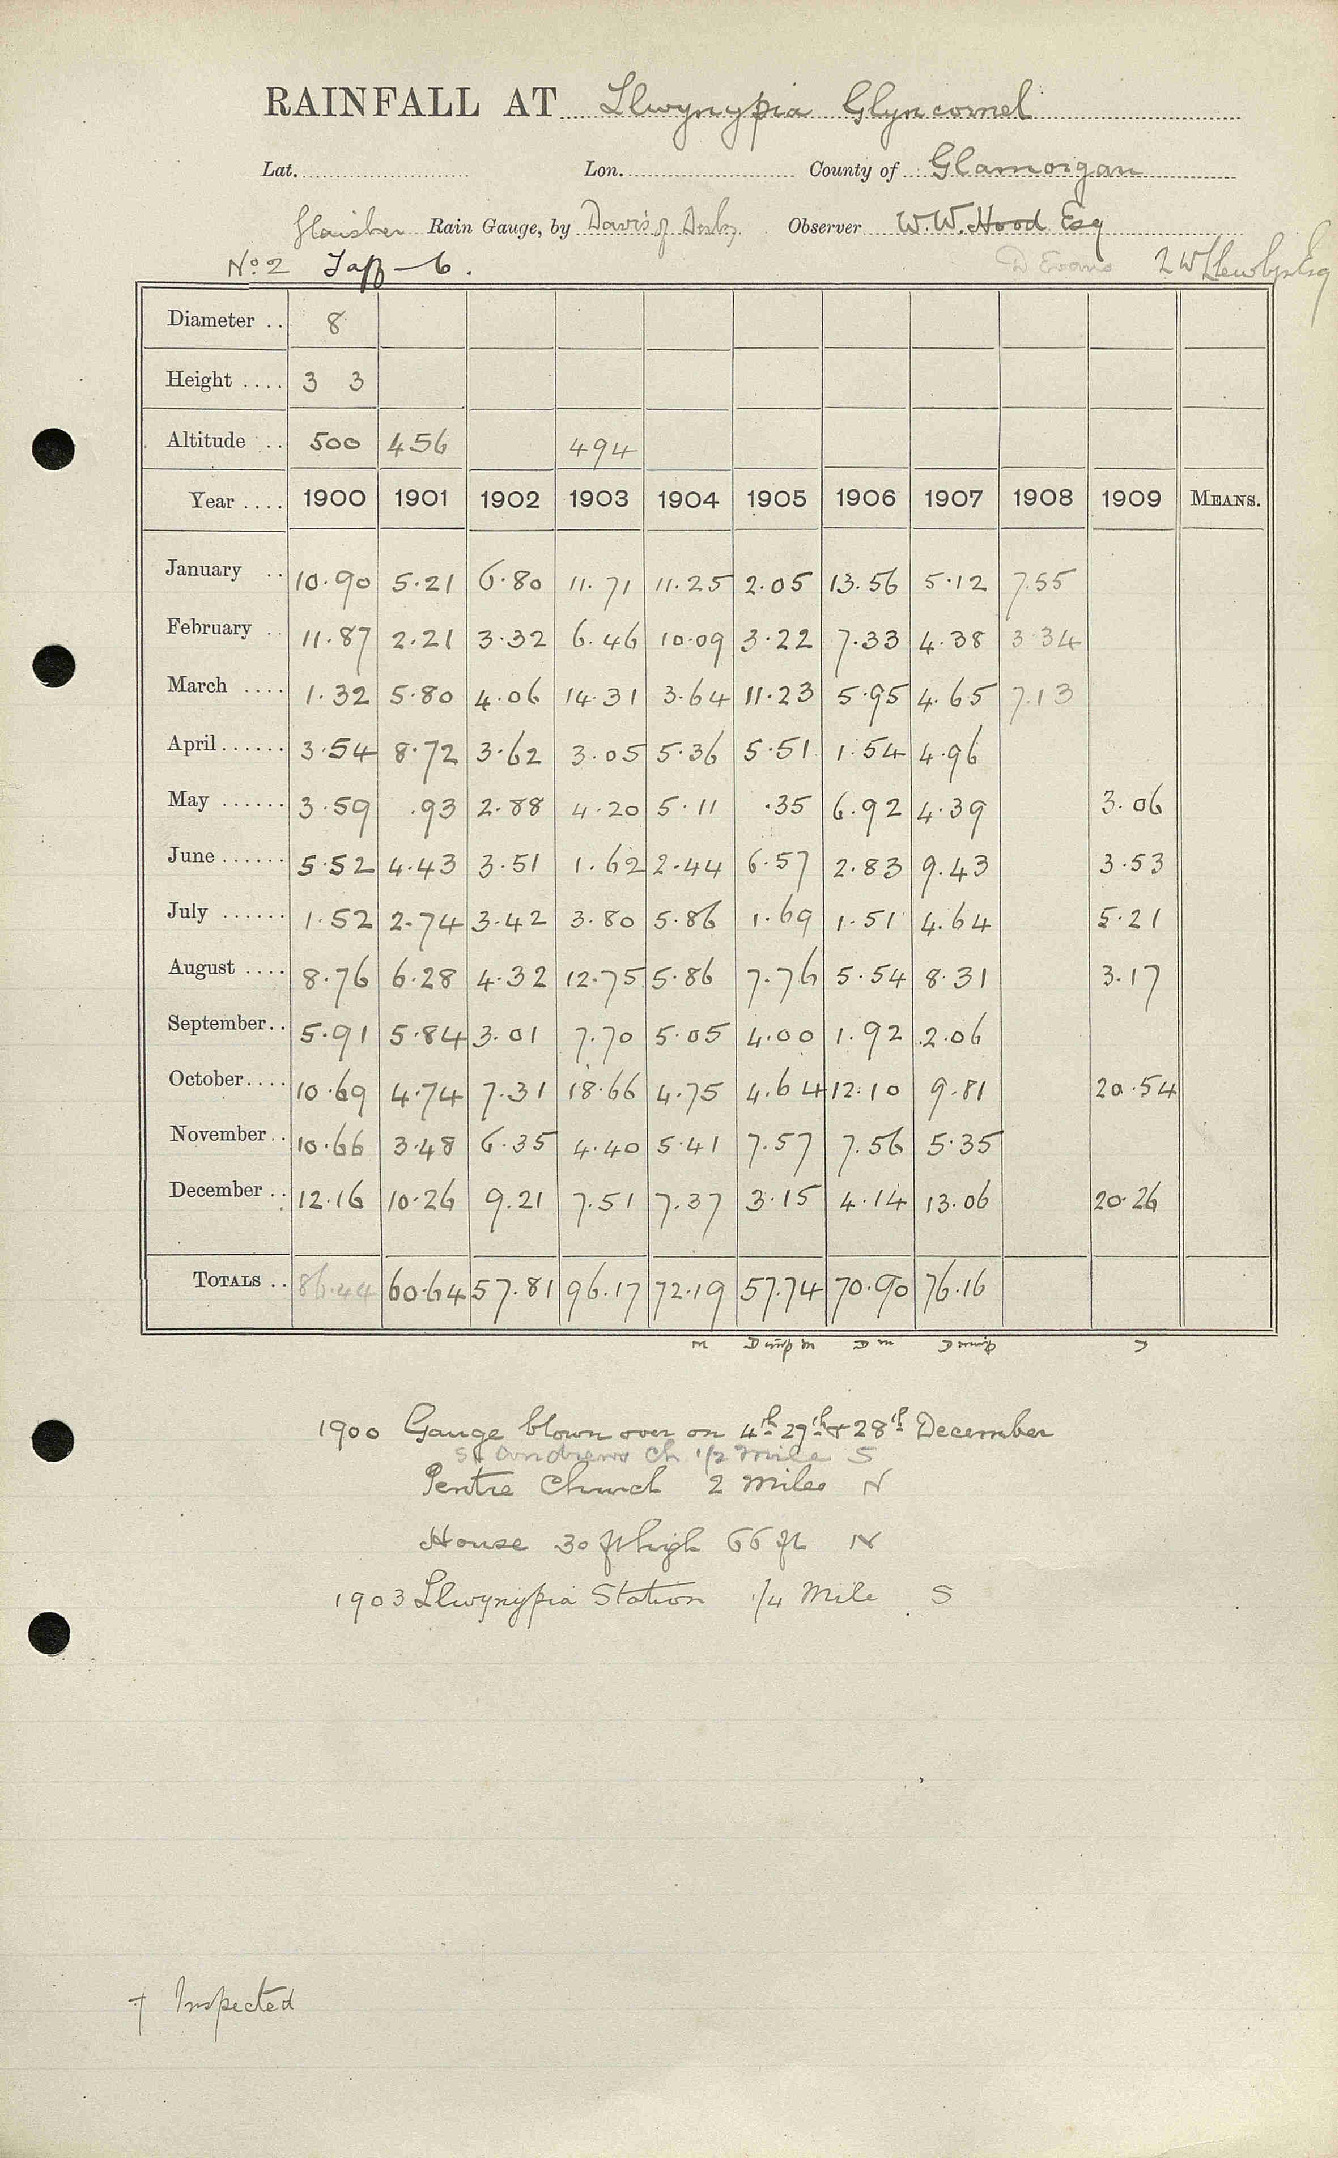 RAINFALL AT Llwynypia Glyncornel
Lat. Lon. County of Glamorgan
Glaisher Rain Gauge, by Davis of Derby Observer W.W. Hood Esq
No 2 Taff — 6. D Evans 2 W Llewelyn Esq
Diameter .. 8
Height .... 3 3
Altitude .. 500 456 494
Year .... 1900 1901 1902 1903 1904 1905 1906 1907 1908 1909 MEANS.
January .. 10.90 5.21 6.80 11.71 11.25 2.05 13.56 5.12 7.55
February .. 11.87 2.21 3.32 6.46 10.09 3.22 7.33 4.38 3.34
March .... 1.32 5.80 4.06 14.31 3.64 11.23 5.95 4.65 7.13
April ...... 3.54 8.72 3.62 3.05 5.36 5.51 1.54 4.96
May ...... 3.59 .93 2.88 4.20 5.11 .35 6.92 4.39 3.06
June ...... 5.52 4.43 3.51 1.62 2.44 6.57 2.83 9.43 3.53
July ...... 1.52 2.74 3.42 3.80 5.86 1.69 1.51 4.64 5.21
August .... 8.76 6.28 4.32 12.75 5.86 7.76 5.54 8.31 3.17
September .. 5.91 5.84 3.01 7.70 5.05 4.00 1.92 2.06
October .... 10.69 4.74 7.31 18.66 4.75 4.64 12.10 9.81 20.54
November .. 10.66 3.48 6.35 4.40 5.41 7.57 7.56 5.35
December .. 12.16 10.26 9.21 7.51 7.37 3.15 4.14 13.06 20.26
TOTALS .. 86.44 60.64 57.81 96.17 72.19 57.74 70.90 76.16
1900 Gauge blown over on 4th 27th & 28th December
St Andrews Ch 1/2 mile S
Pentre Church 2 miles N
House 30 ft high 66 ft N
1903 Llwynypia Station 1/4 Mile S
† Inspected